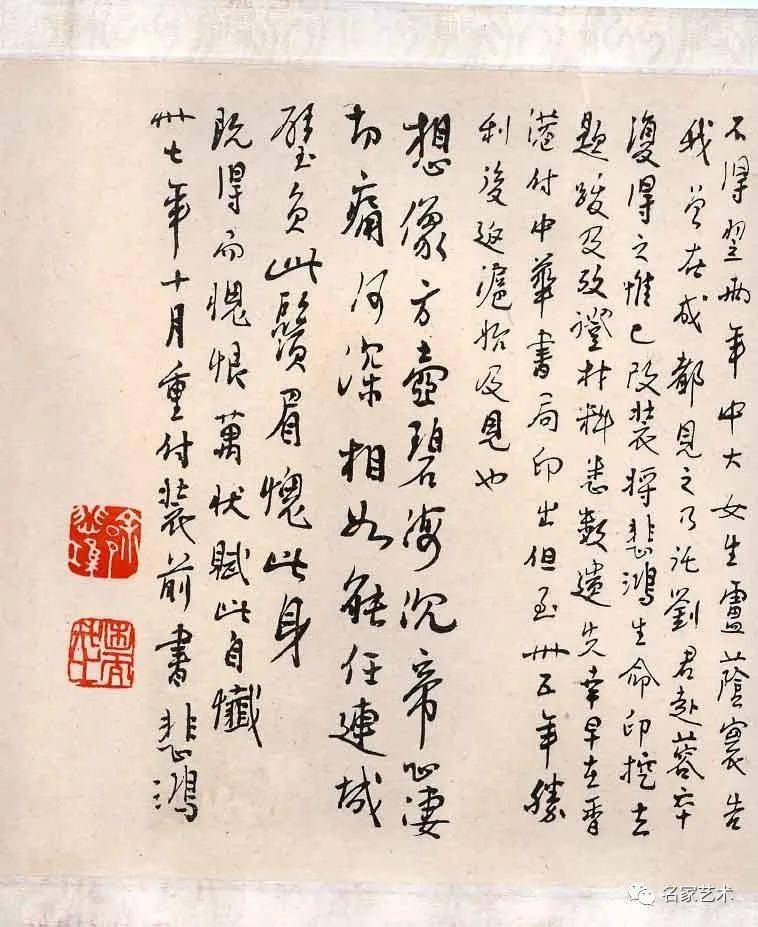 不得翌兩年中大女生盧蔭寰告
我曾在成都見之乃託劉君赴蓉卒
復得之惟已改裝將悲鴻生命印挖去
題跋及攷證材料悉數遺失幸早在香
港付中華書局印出但至卅五年勝
利後返滬始及見也
想像方壺碧海沉帝心淒
切痛何深相如能任連城
璧負此鬚眉愧此身
既得而愧恨萬狀賦此自懺
卅七年十月重付裝前書悲鴻
名家艺术